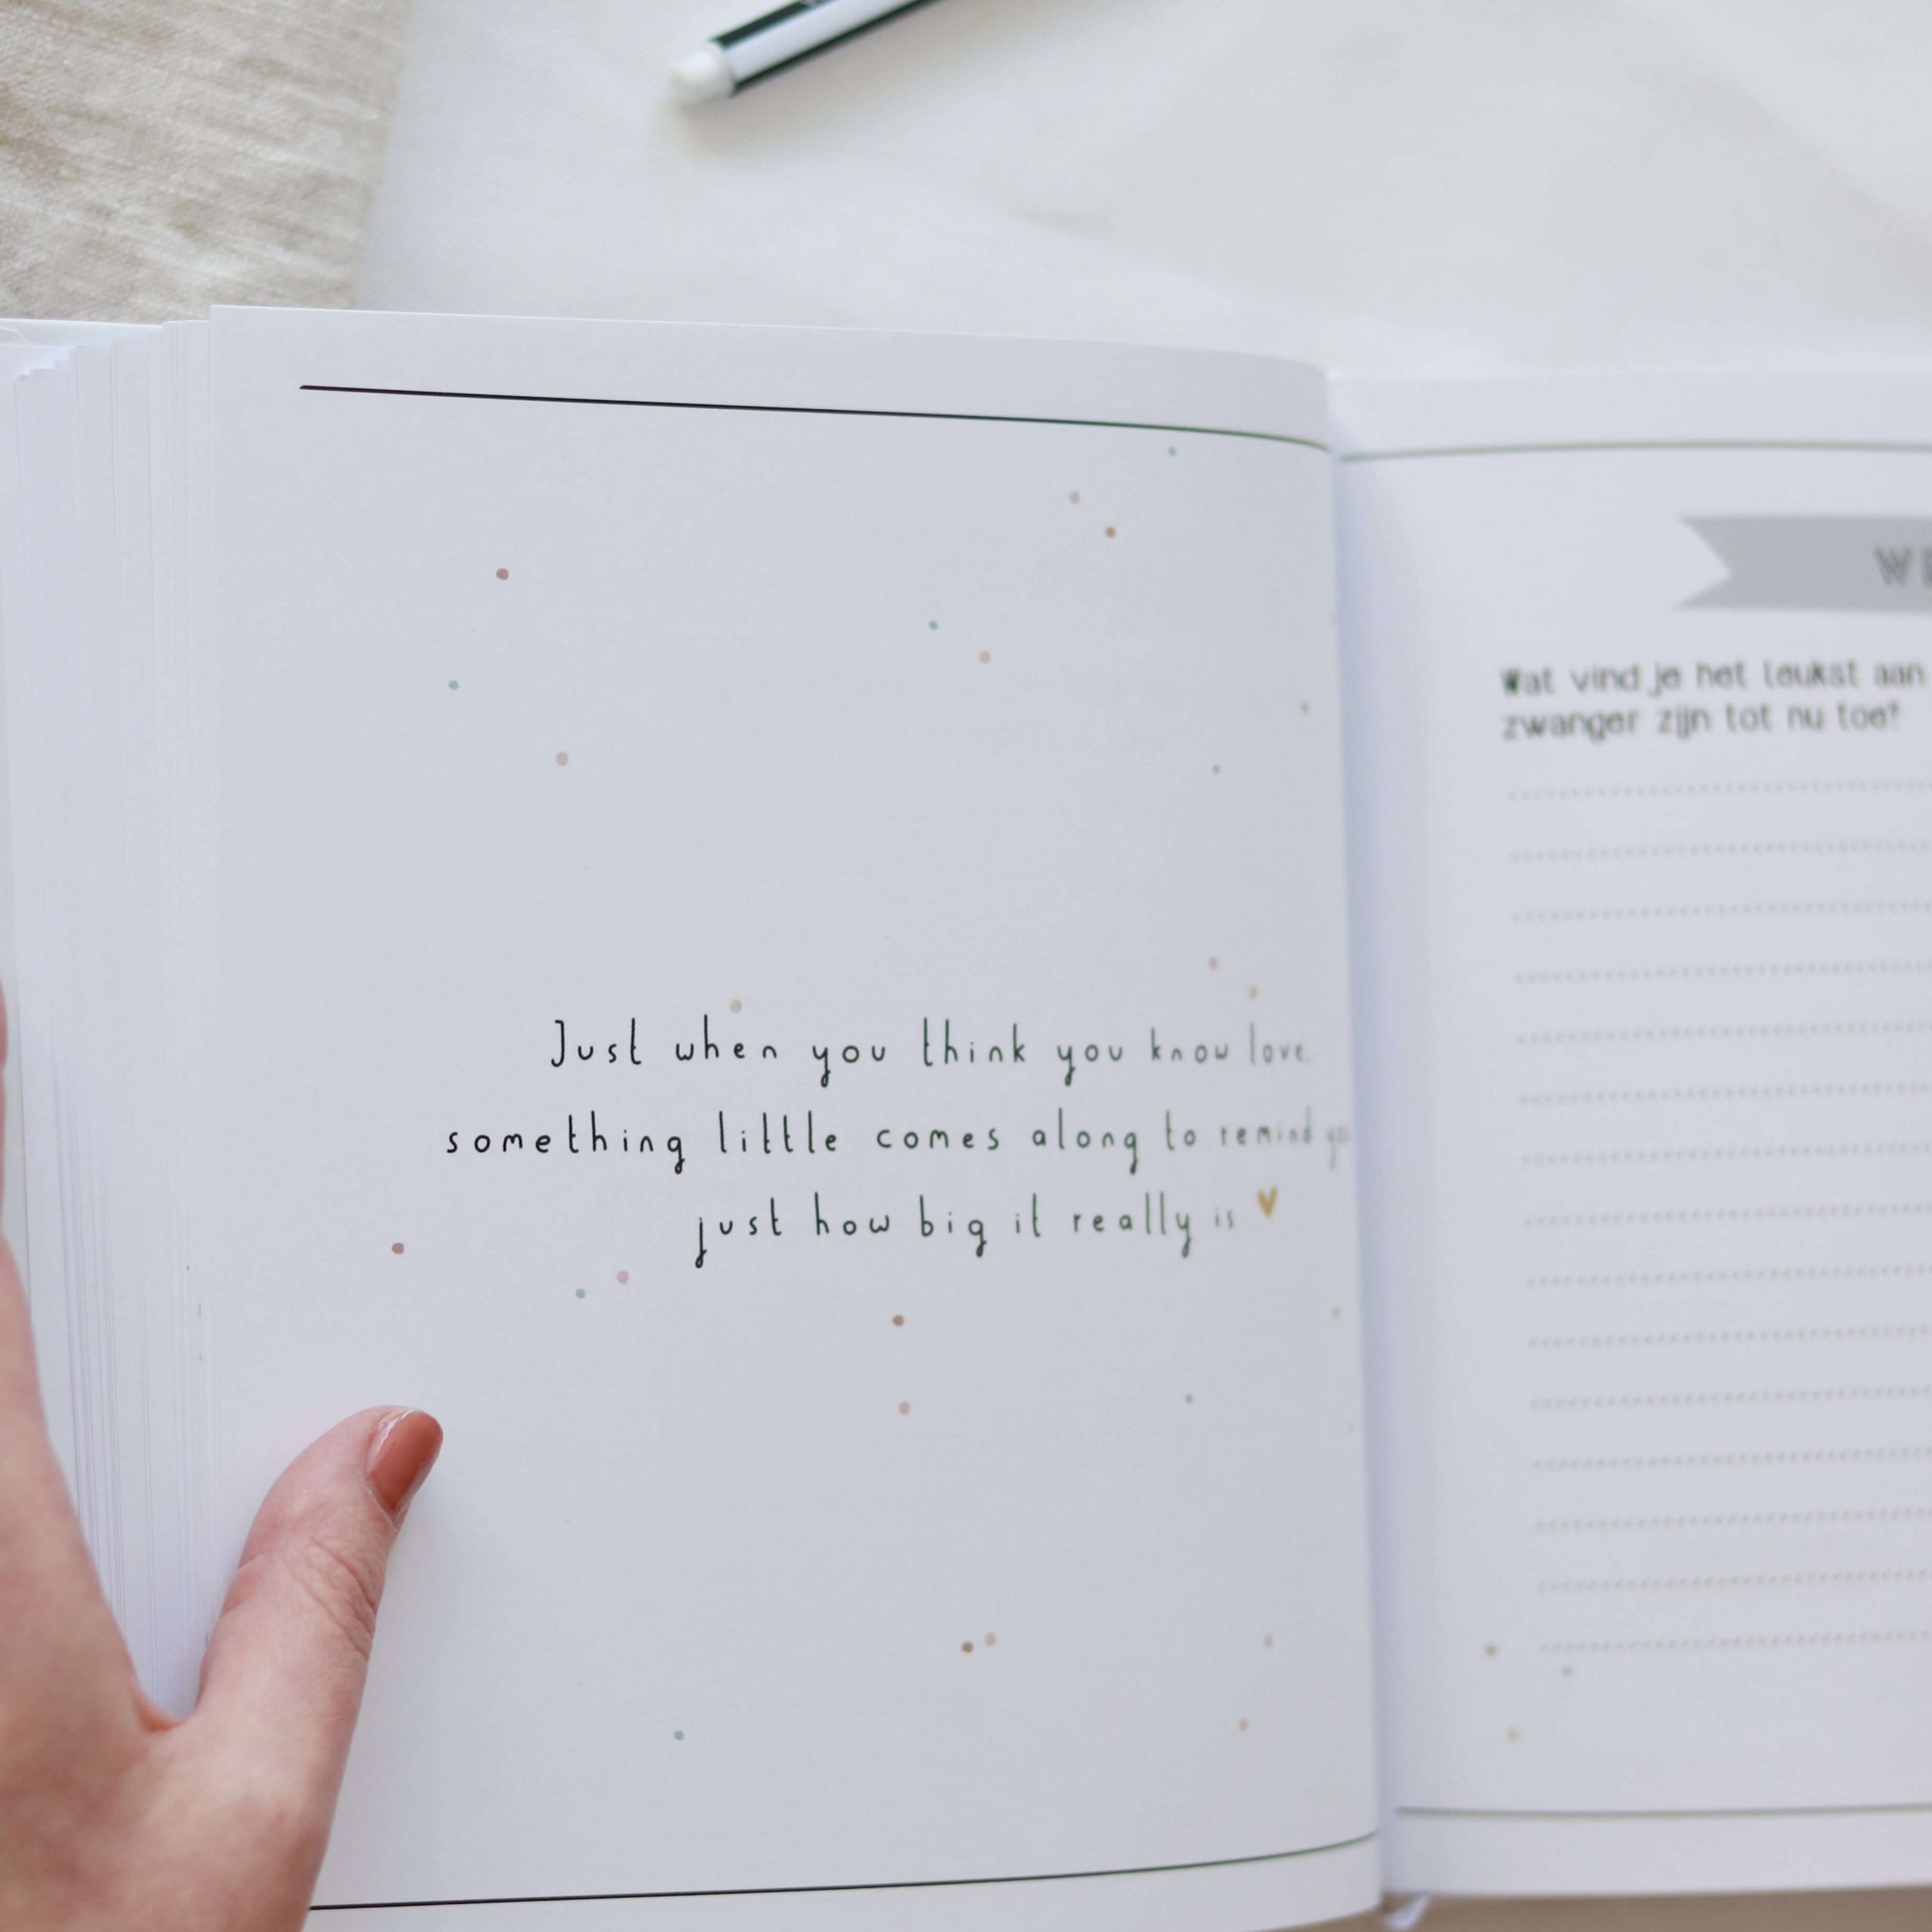 Just when you think you know love,
something little comes along to remind you
just how big it really is
Wat vind je het leukst aan
zwanger zijn tot nu toe?